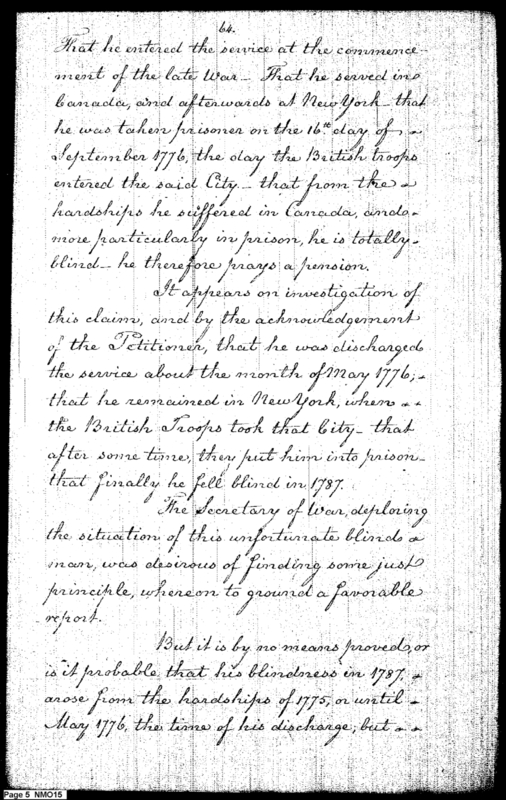 64.
That he entered the service at the commence-
ment of the late War - That he served in
Canada, and afterwards at New York - that
he was taken prisoner on the 16th day of
September 1776, the day the British troops
entered the said City - that from the
hardships he suffered in Canada, and
more particularly in prison, he is totally
blind - he therefore prays a pension.
It appears on investigation of
this claim, and by the acknowledgement
of the Petitioner, that he was discharged
the service about the month of May 1776;
that he remained in New York, when
the British Troops took that City - that
after some time, they put him into prison -
that finally he fell blind in 1787.
The Secretary of War, deploring
the situation of this unfortunate blind
man, was desirous of finding some just
principle, whereon to ground a favorable
report.
But it is by no means proved, or
is it probable, that his blindness in 1787,
arose from the hardships of 1775, or until
May 1776, the time of his discharge; but
Page 5 NMO15